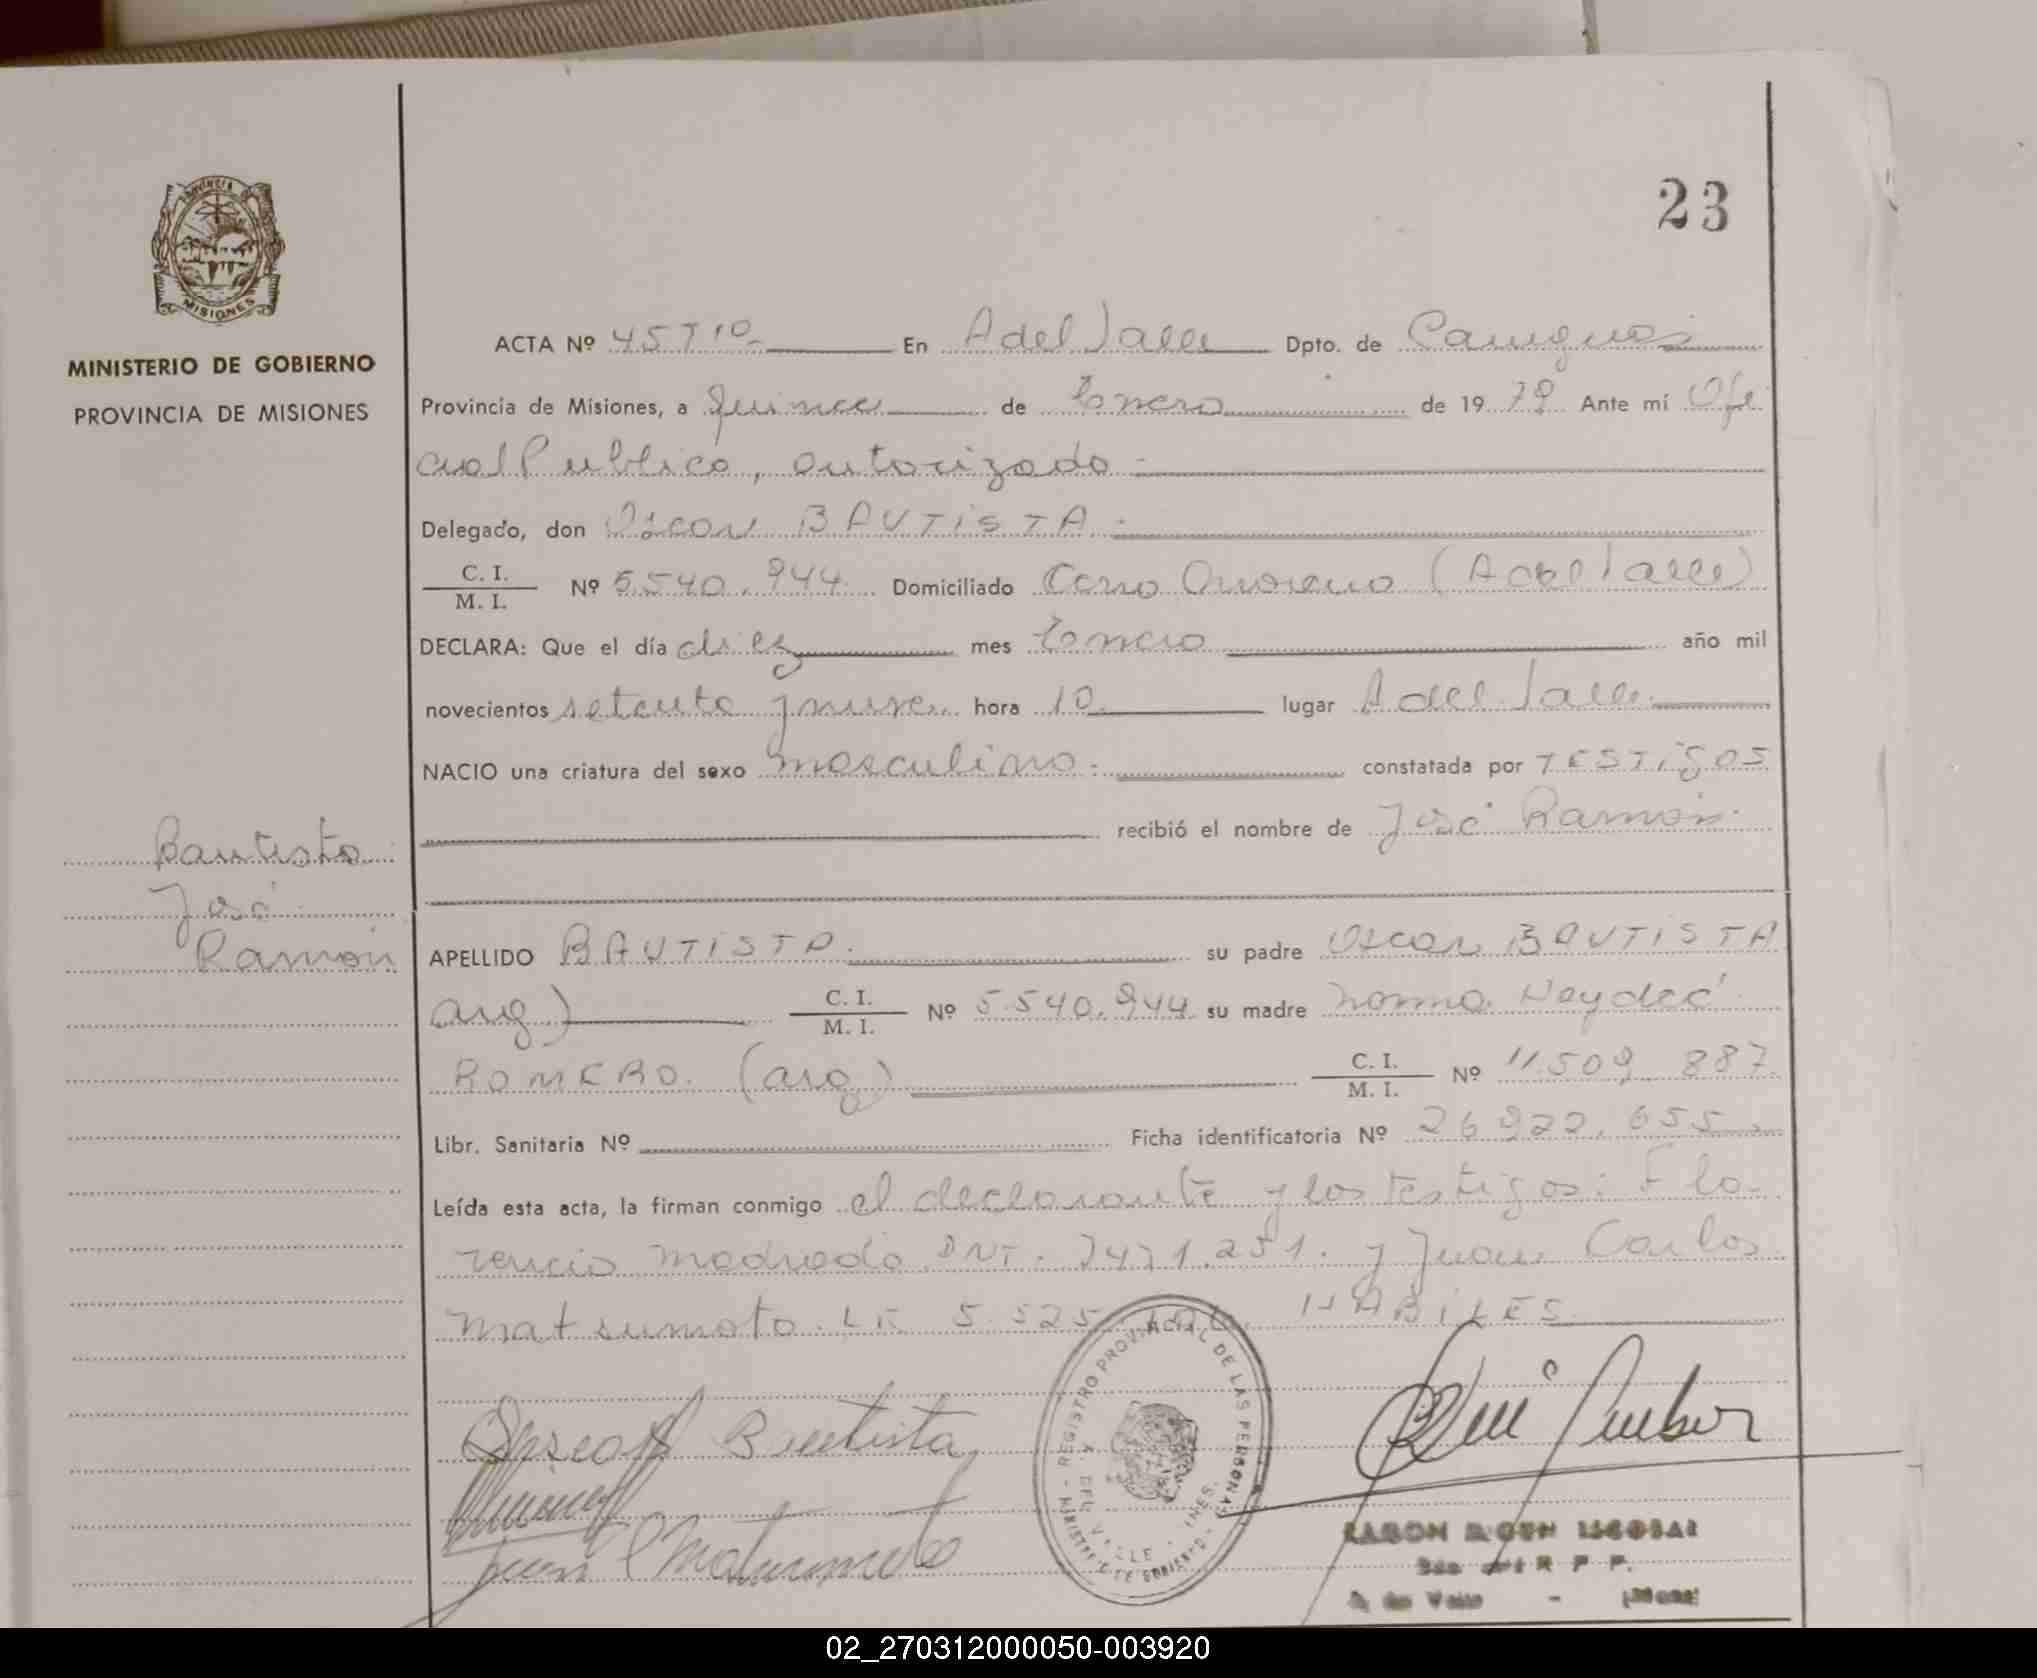 23
PROVINCIA DE
MISIONES
MINISTERIO DE GOBIERNO
PROVINCIA DE MISIONES
ACTA Nº 45 Tº En A del Valle Dpto. de Cainguas
Provincia de Misiones, a quince de Enero de 1979 Ante mí Ofi
cial Publico, autorizado
Delegado, don Oscar BAUTISTA
C. I.
M. I. Nº 5.540.944 Domiciliado Cerro Moreno (A del Valle)
DECLARA: Que el día diez mes Enero año mil
novecientos setenta y nueve hora 10 lugar A del Valle
NACIO una criatura del sexo masculino. constatada por TESTigos
recibió el nombre de José Ramón
Bautista
José
Ramón
APELLIDO BAUTISTA su padre Oscar BAUTISTA
arg) C. I.
M. I. Nº 5.540.944 su madre Norma Haydeé
ROMERO. (arg) C. I.
M. I. Nº 11.509.887
Libr. Sanitaria Nº Ficha identificatoria Nº 26.922.655
Leída esta acta, la firman conmigo el declarante y los testigos: Flo-
rencio DNI. 7471.251. y Juan Carlos
Matsumoto. LE 5.525 HABILES
Oscar Bautista
Juan C Matsumoto
REGISTRO PROVINCIAL DE LAS PERSONAS
DEL VALLE
MINISTERIO DE GOBIERNO
ESCOBAR
R P P.
Valle - Mnes
02_270312000050-003920